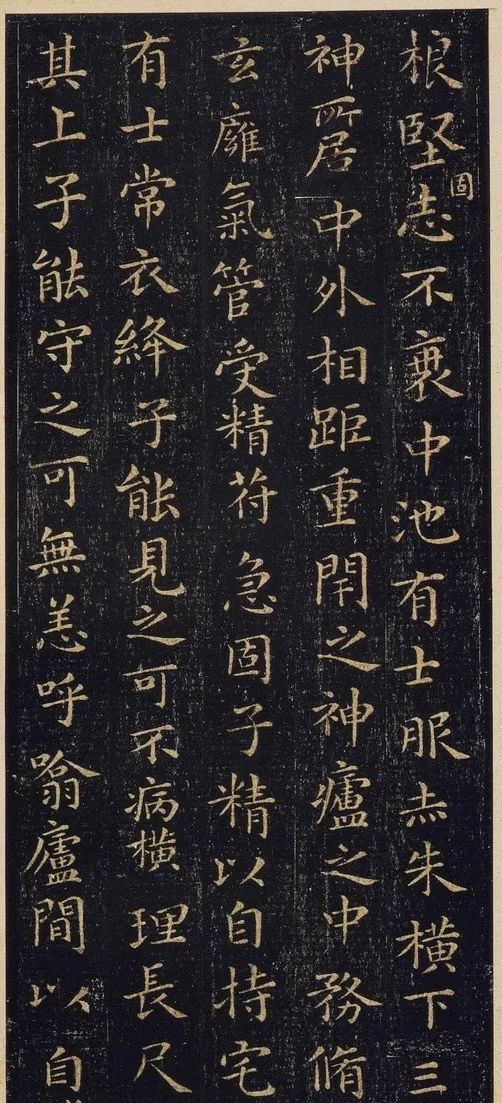 根堅固志不衰中池有士服赤朱橫下三
神所居中外相距重閇之神廬之中務脩
玄廱氣管受精苻急固子精以自持宅
有士常衣絳子能見之可不病橫理長尺
其上子能守之可無恙呼噏廬間以自